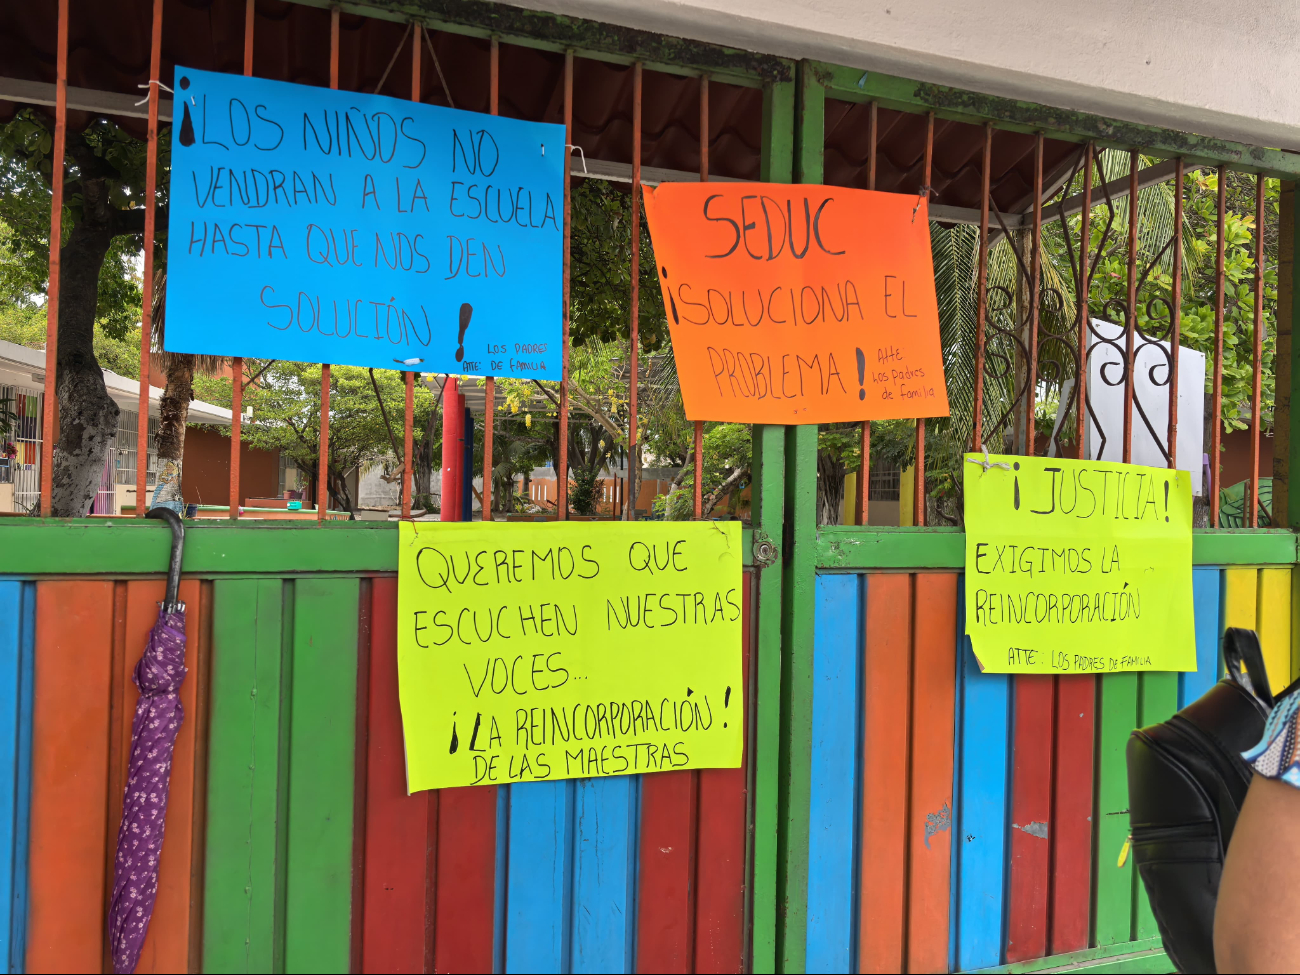 ¡LOS NIÑOS NO
VENDRAN A LA ESCUELA
HASTA QUE NOS DEN
SOLUCIÓN!
LOS PADRES
ATTE: DE FAMILIA
SEDUC
¡SOLUCIONA EL
PROBLEMA!
Atte
Los Padres
de familia
QUEREMOS QUE
ESCUCHEN NUESTRAS
VOCES...
¡LA REINCORPORACIÓN!
DE LAS MAESTRAS
¡JUSTICIA!
EXIGIMOS LA
REINCORPORACIÓN
ATTE: LOS PADRES DE FAMILIA